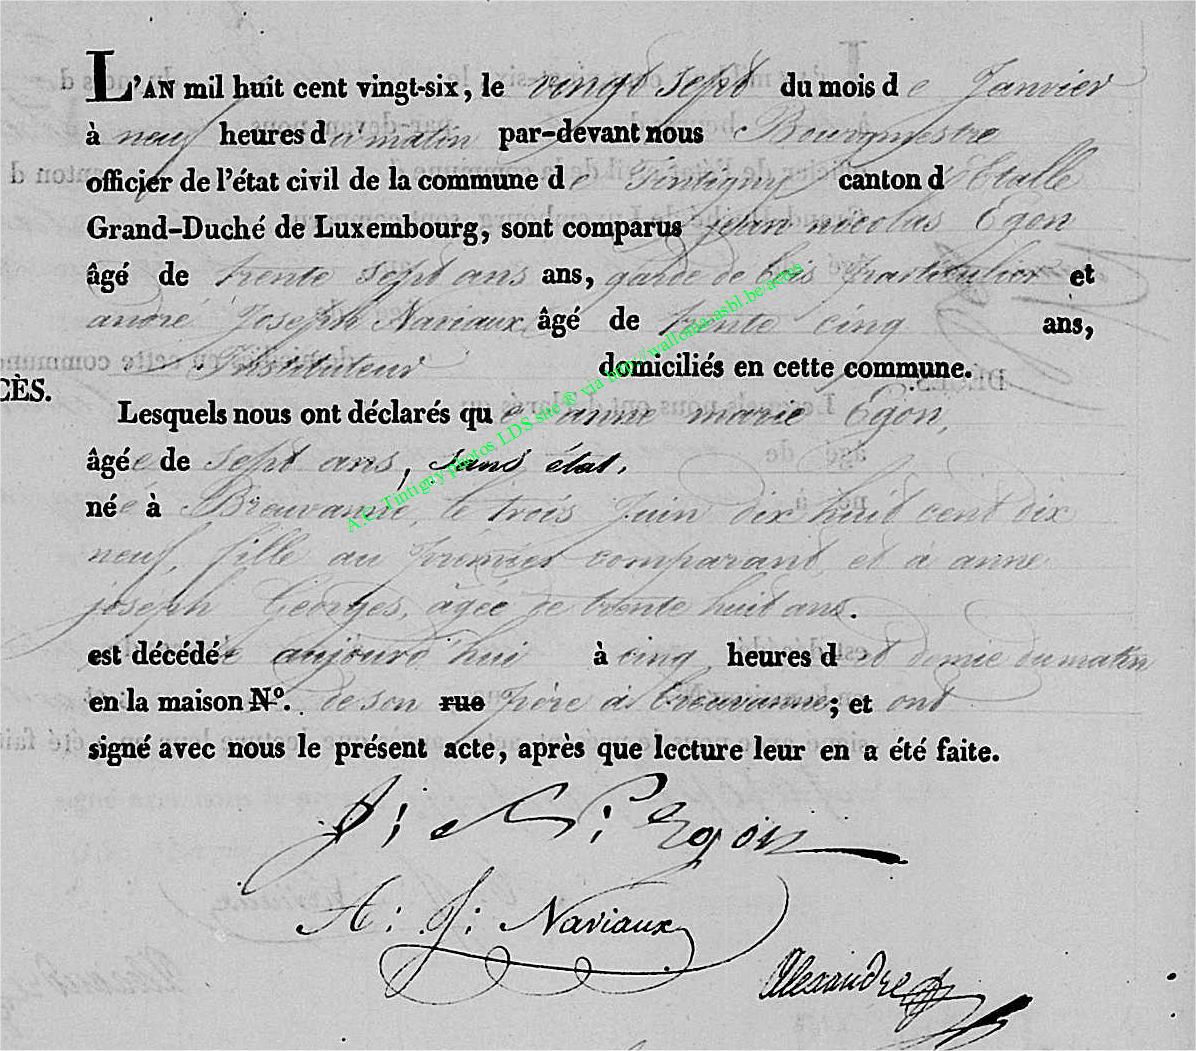 L'AN mil huit cent vingt-six, le vingt sept du mois de Janvier
à neuf heures du matin par-devant nous Bourgmestre
officier de l'état civil de la commune de Tintigny canton d'Etalle
Grand-Duché de Luxembourg, sont comparus jean nicolas Egon
âgé de trente sept ans ans, garde de bois particulier et
andré Joseph Naviaux âgé de trente cinq ans,
Instituteur domiciliés en cette commune.
CÈS.
Lesquels nous ont déclarés que anne marie Egon,
âgée de sept ans, sans état.
née à Breuvanne, le trois Juin dix huit cent dix
neuf, fille au premier comparant et à anne
joseph Georges, agée de trente huit ans.
est décédée aujourd'hui à cinq heures d et demie du matin
en la maison N°. de son rue père à breuvanne; et ont
signé avec nous le présent acte, après que lecture leur en a été faite.
J: N: Egon
A: J: Naviaux
Alexandre
A.C. Tintigny photos LDS site ® via http://wallonia-asbl.be/actes